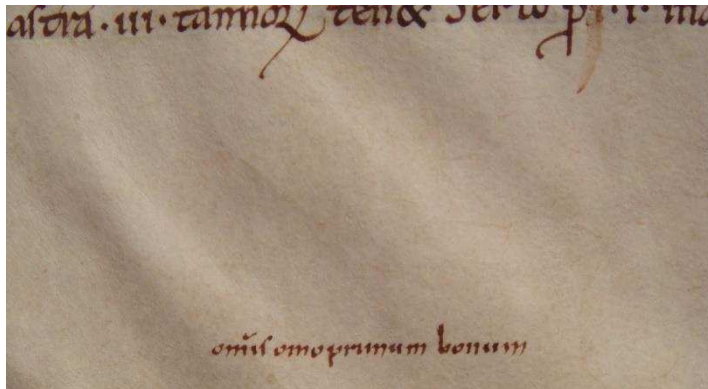 astra·iii·tannoꝝ ten& Serlo ꝑ ·i· ma
om̅is omoprunum bonum